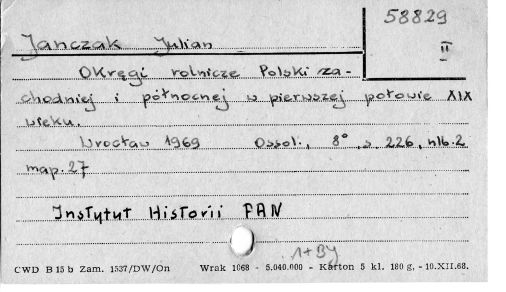 58829
II
Janczak Julian
Okręgi rolnicze Polski za-
chodniej i północnej w pierwszej połowie XIX
wieku.
Wrocław 1969 Ossol., 8°, s. 226, nlb. 2
map. 27
Instytut Historii PAN
1+By
CWD B 15 b Zam. 1537/DW/On Wrak 1068 - 5.040.000 - Karton 5 kl. 180 g. - 10.XII.68.